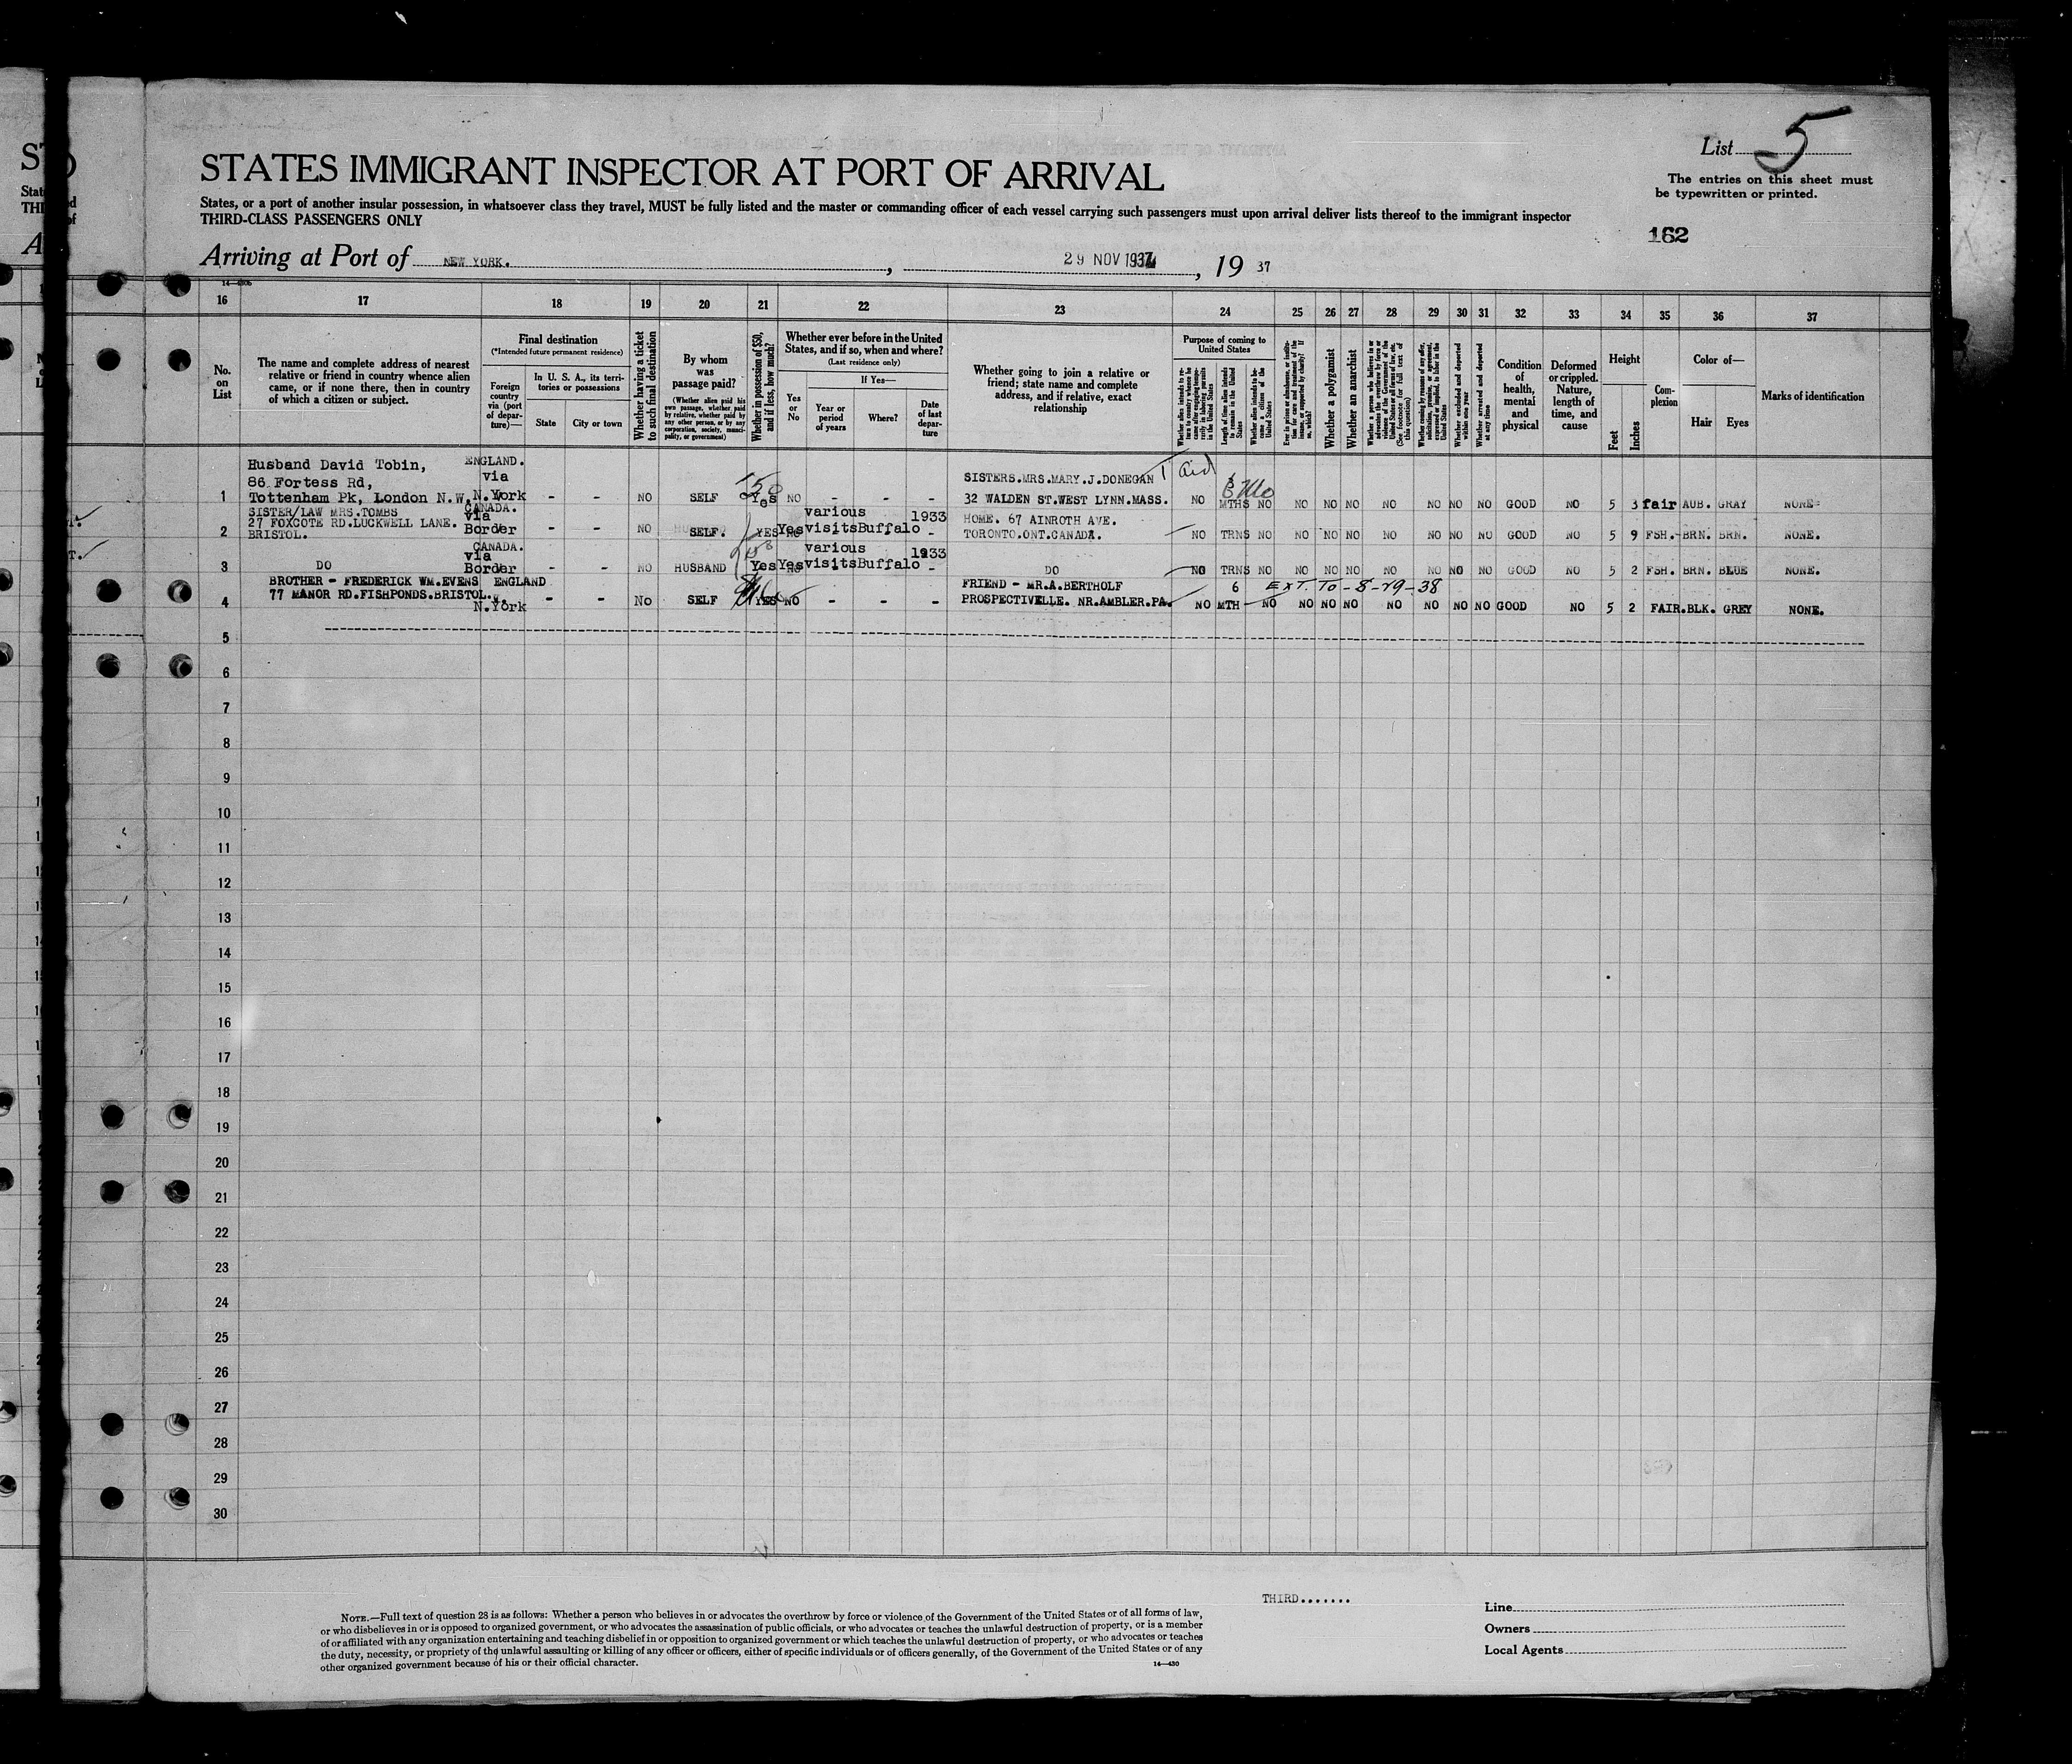 STATES IMMIGRANT INSPECTOR AT PORT OF ARRIVAL
List 5
The entries on this sheet must
be typewritten or printed.
States, or a port of another insular possession, in whatsoever class they travel, MUST be fully listed and the master or commanding officer of each vessel carrying such passengers must upon arrival deliver lists thereof to the immigrant inspector
THIRD-CLASS PASSENGERS ONLY
162
Arriving at Port of NEW YORK. , 29 NOV 1937 , 19 37
16 17 18 19 20 21 22 23 24 25 26 27 28 29 30 31 32 33 34 35 36 37
No.
on
List
The name and complete address of nearest
relative or friend in country whence alien
came, or if none there, then in country
of which a citizen or subject.
Final destination
(*Intended future permanent residence)
Foreign
country
via (port
of depar-
ture)—
In U. S. A., its terri-
tories or possessions
State
City or town
Whether having a ticket
to such final destination
By whom
was
passage paid?
(Whether alien paid his
own passage, whether paid
by relative, whether paid by
any other person, or by any
corporation, society, munici-
pality, or government)
Whether in possession of $50,
and if less, how much?
Whether ever before in the United
States, and if so, when and where?
(Last residence only)
Yes
or
No
If Yes—
Year or
period
of years
Where?
Date
of last
depar-
ture
Whether going to join a relative or
friend; state name and complete
address, and if relative, exact
relationship
Purpose of coming to
United States
Length of time alien intends
to remain in the United
States
Whether alien intends to be-
come a citizen of the
United States
Whether a polygamist
Whether an anarchist
Whether excluded and deported
within one year
Whether arrested and deported
at any time
Condition
of
health,
mental
and
physical
Deformed
or crippled.
Nature,
length of
time, and
cause
Height
Feet
Inches
Com-
plexion
Color of—
Hair
Eyes
Marks of identification
Husband David Tobin, ENGLAND.
86 Fortess Rd, via SISTERS.MRS.MARY.J.DONEGAN
1 Tottenham Pk, London N.W. N.York - - NO SELF Yes NO - - - 32 WALDEN ST.WEST LYNN.MASS. NO MTHS NO NO NO NO NO NO NO NO GOOD NO 5 3 fair AUB. GRAY NONE
SISTER/LAW MRS.TOMBS CANADA. via various 1933 HOME. 67 AINROTH AVE.
27 FOXCOTE RD.LUCKWELL LANE.
2 BRISTOL. Border - - NO SELF. YES Yes visits Buffalo - TORONTO.ONT.CANADA. NO TRNS NO NO NO NO NO NO NO NO GOOD NO 5 9 FSH. BRN. BRN. NONE.
CANADA. via various 1933
3 DO Border - - NO HUSBAND Yes Yes visits Buffalo - DO NO TRNS NO NO NO NO NO NO NO NO GOOD NO 5 2 FSH. BRN. BLUE NONE.
BROTHER - FREDERICK WM.EVENS ENGLAND FRIEND - MR.A.BERTHOLF 6 EXT. To - 8-29-38
4 77 MANOR RD.FISHPONDS.BRISTOL. N.York - - No SELF YES NO - - - PROSPECTIVELLE. NR.AMBLER.PA. NO MTH NO NO NO NO NO NO NO NO GOOD NO 5 2 FAIR. BLK. GREY NONE.
5
6
7
8
9
10
11
12
13
14
15
16
17
18
19
20
21
22
23
24
25
26
27
28
29
30
THIRD.......
NOTE.—Full text of question 28 is as follows: Whether a person who believes in or advocates the overthrow by force or violence of the Government of the United States or of all forms of law,
or who disbelieves in or is opposed to organized government, or who advocates the assassination of public officials, or who advocates or teaches the unlawful destruction of property, or is a member
of or affiliated with any organization entertaining and teaching disbelief in or opposition to organized government or which teaches the unlawful destruction of property, or who advocates or teaches
the duty, necessity, or propriety of the unlawful assaulting or killing of any officer or officers, either of specific individuals or of officers generally, of the Government of the United States or of any
other organized government because of his or their official character.
14—430
Line
Owners
Local Agents